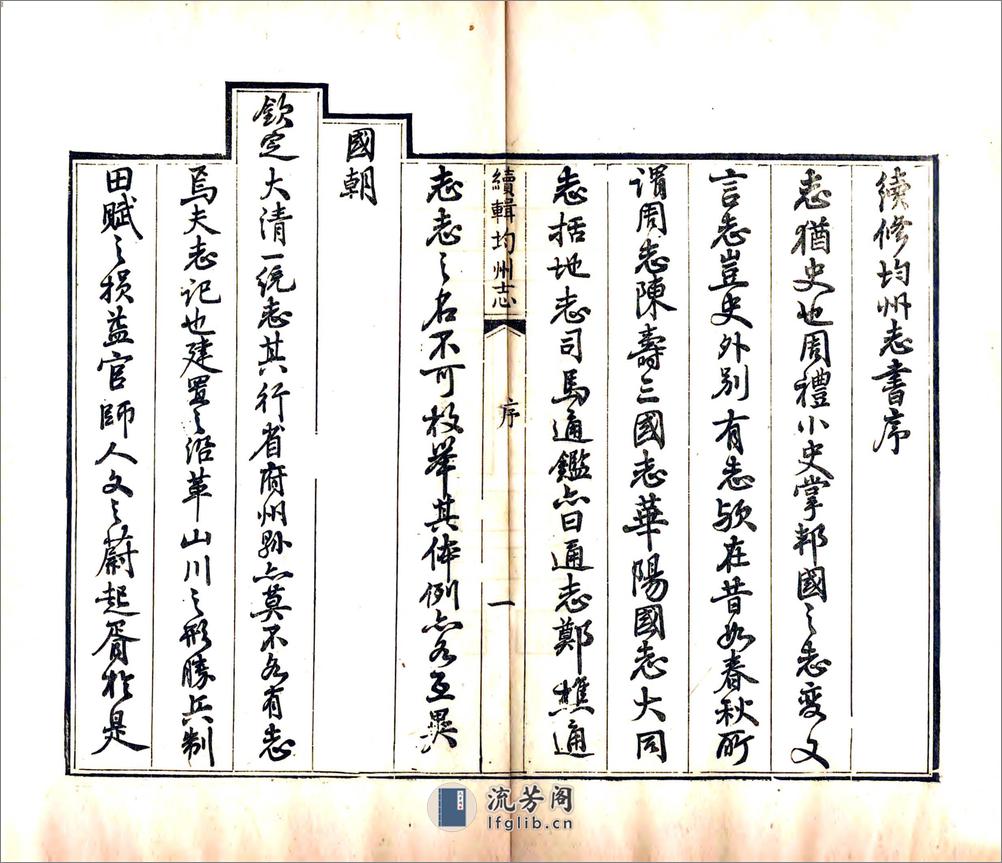 續修均州志書序
志猶史也周禮小史掌邦國之志變文
言志豈史外别有志欤在昔如春秋所
謂周志陳壽三國志華陽國志大同
志括地志司馬通鑑亦曰通志鄭樵通
續輯均州志
序
一
志志之名不可枚舉其体例亦各互異
國朝
欽定大清一統志其行省府州縣亦莫不各有志
焉夫志記也建置之沿革山川之形勝兵制
田賦之損益官師人文之蔚起胥於是
流芳阁
lfglib.cn